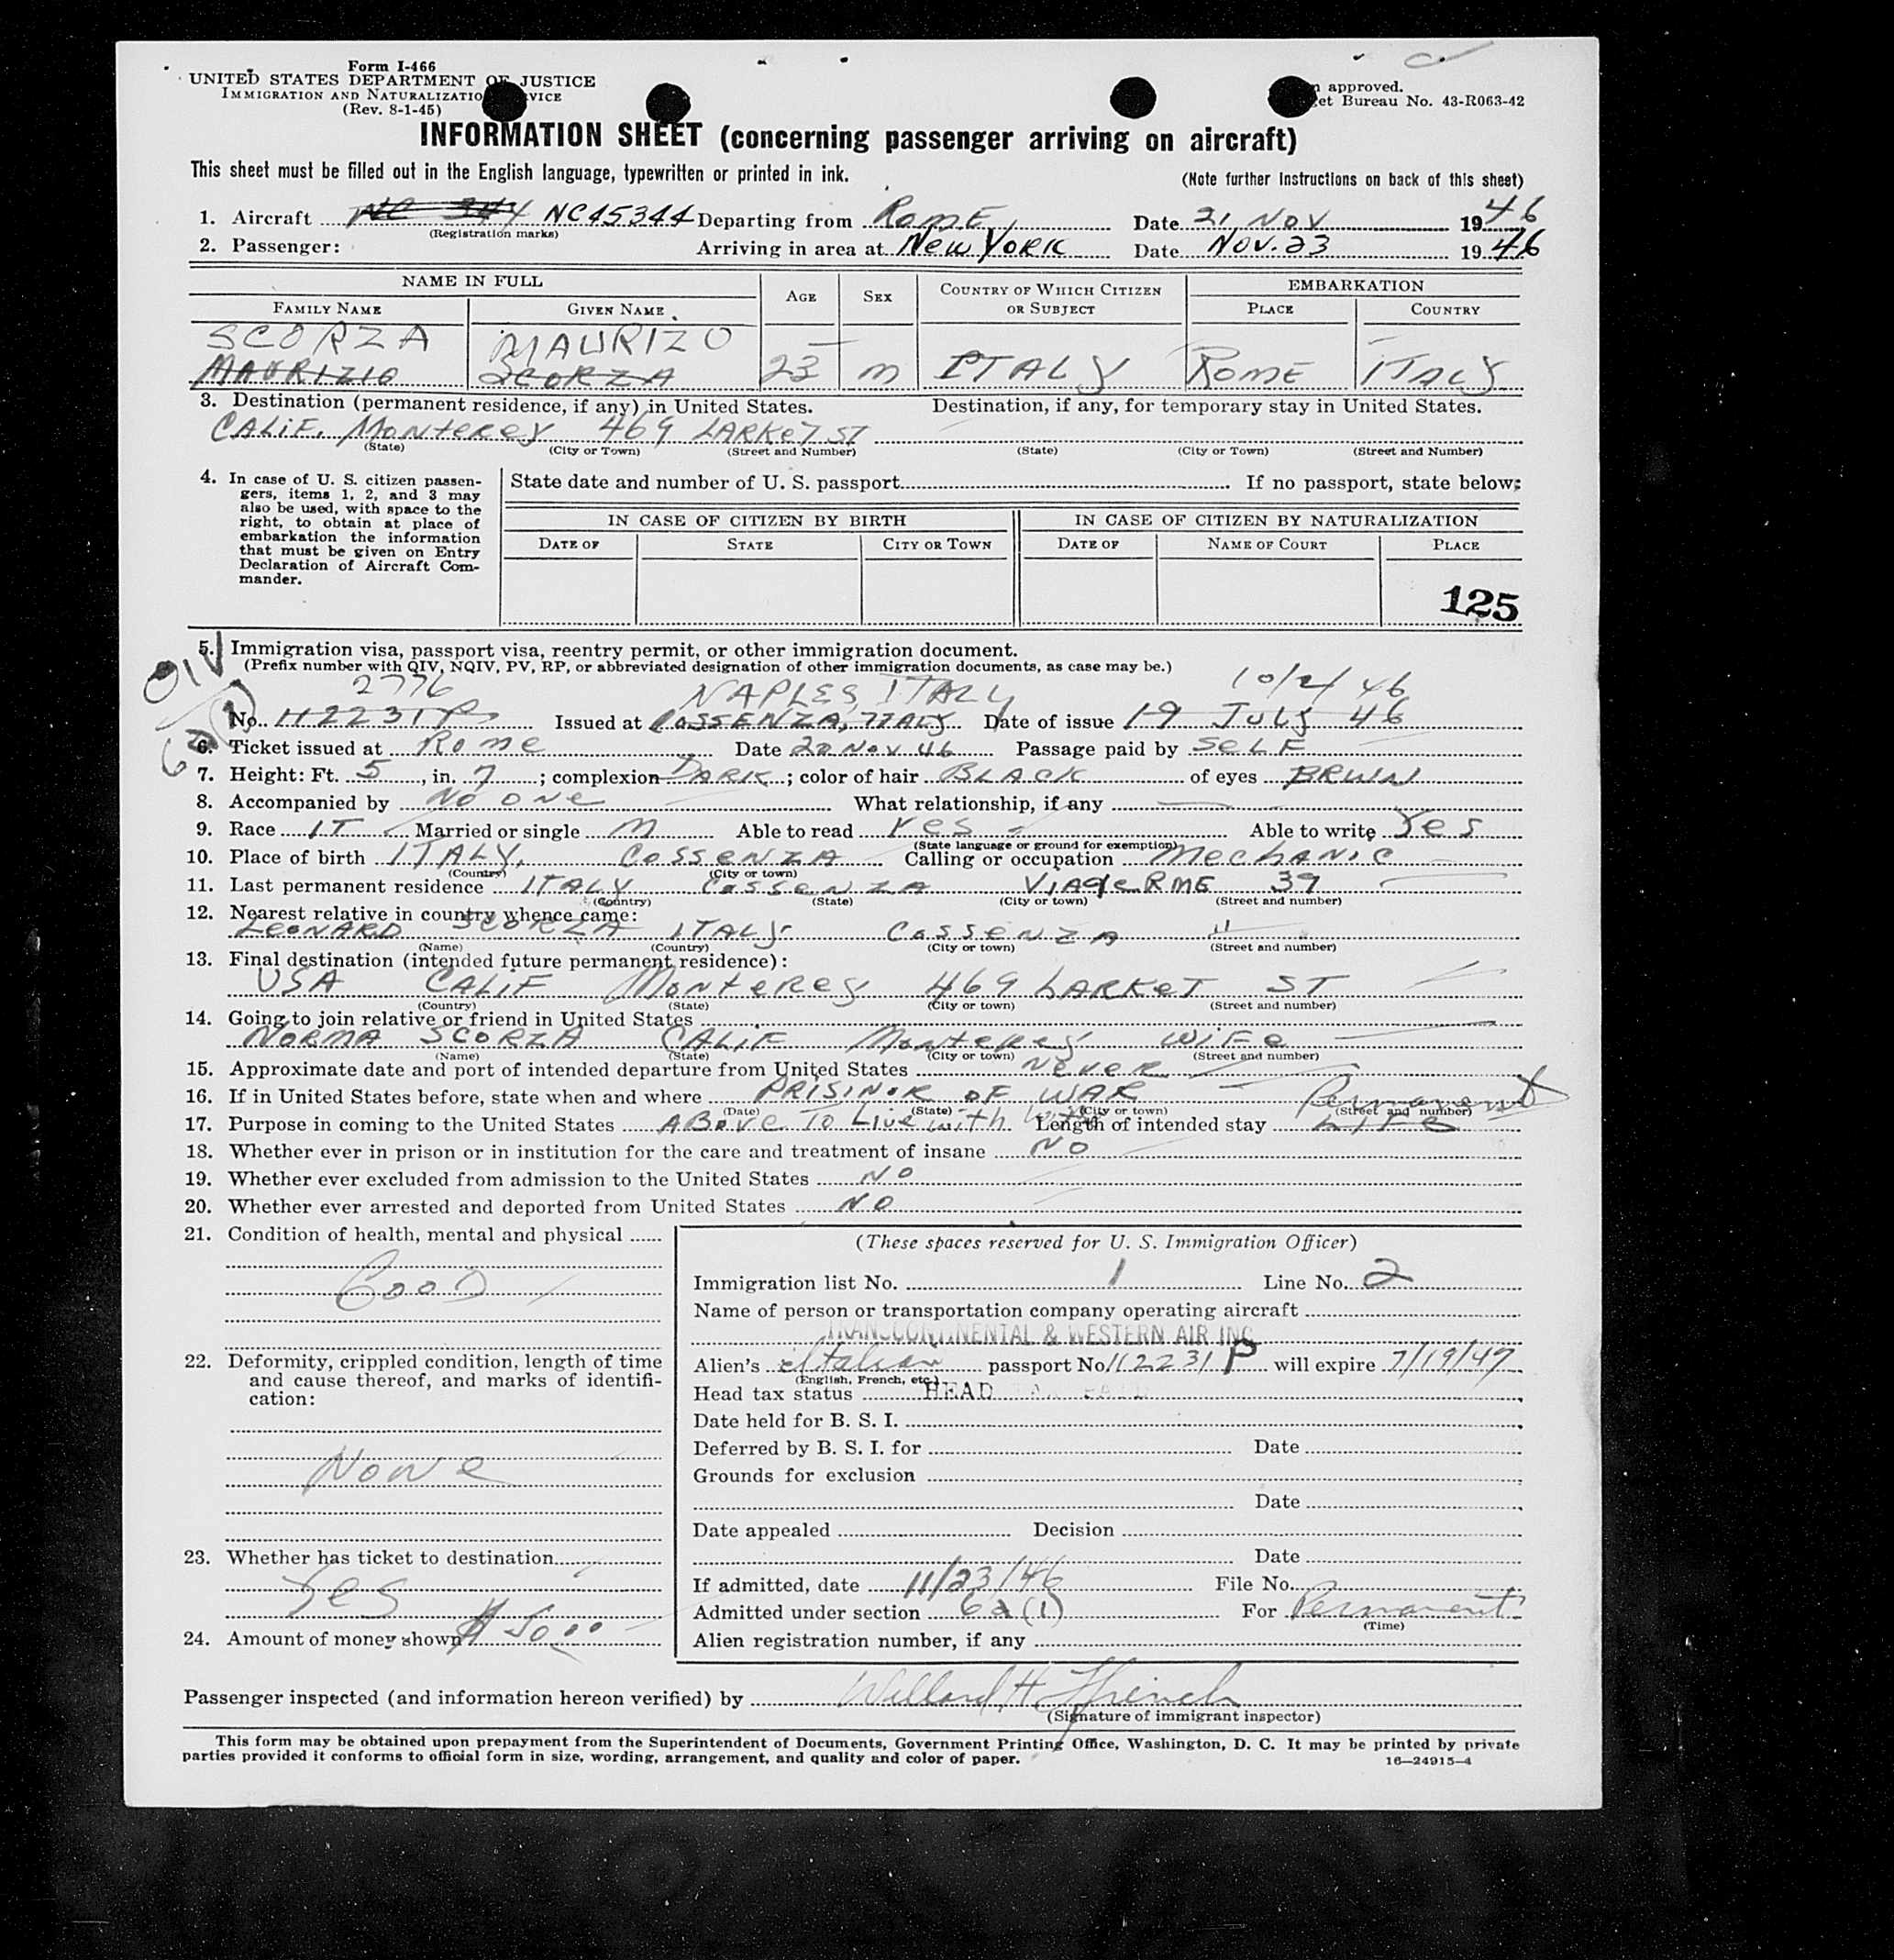 Form I-466
UNITED STATES DEPARTMENT OF JUSTICE
IMMIGRATION AND NATURALIZATION SERVICE
(Rev. 8-1-45)
approved.
Bureau No. 43-R063-42
INFORMATION SHEET (concerning passenger arriving on aircraft)
This sheet must be filled out in the English language, typewritten or printed in ink.
(Note further instructions on back of this sheet)
1. Aircraft NC45344 Departing from ROME Date 21 NOV 1946
(Registration marks)
2. Passenger: Arriving in area at New YORK Date NOV. 23 1946
NAME IN FULL AGE SEX COUNTRY OF WHICH CITIZEN OR SUBJECT EMBARKATION
FAMILY NAME GIVEN NAME PLACE COUNTRY
SCORZA MAURIZO
MAURIZIO SCORZA 23 M ITALY ROME ITALY
3. Destination (permanent residence, if any) in United States. Destination, if any, for temporary stay in United States.
CALIF. MONTEREY 469 LARKET ST
(State) (City or Town) (Street and Number) (State) (City or Town) (Street and Number)
4. In case of U. S. citizen passengers, items 1, 2, and 3 may also be used, with space to the right, to obtain at place of embarkation the information that must be given on Entry Declaration of Aircraft Commander.
State date and number of U. S. passport If no passport, state below:
IN CASE OF CITIZEN BY BIRTH IN CASE OF CITIZEN BY NATURALIZATION
DATE OF STATE CITY OR TOWN DATE OF NAME OF COURT PLACE
125
5. Immigration visa, passport visa, reentry permit, or other immigration document.
(Prefix number with QIV, NQIV, PV, RP, or abbreviated designation of other immigration documents, as case may be.)
QIV 2776 NAPLES, ITALY 10/2/46
No. 112231P Issued at COSSENZA, ITALY Date of issue 19 JULY 46
6. Ticket issued at ROME Date 20 NOV 46 Passage paid by SELF
7. Height: Ft. 5, in. 7; complexion DARK; color of hair BLACK of eyes BRWN
8. Accompanied by NO ONE What relationship, if any
9. Race IT Married or single M Able to read Yes Able to write Yes
(State language or ground for exemption)
10. Place of birth ITALY, COSSENZA Calling or occupation MECHANIC
(Country) (City or town)
11. Last permanent residence ITALY COSSENZA 39
(Country) (State) (City or town) (Street and number)
12. Nearest relative in country whence came:
LEONARD SCORZA ITALY COSSENZA "
(Name) (Country) (City or town) (Street and number)
13. Final destination (intended future permanent residence):
USA CALIF MONTEREY 469 LARKET ST
(Country) (State) (City or town) (Street and number)
14. Going to join relative or friend in United States
NORMA SCORZA CALIF MONTEREY WIFE
(Name) (State) (City or town) (Street and number)
15. Approximate date and port of intended departure from United States NEVER
16. If in United States before, state when and where PRISINOR OF WAR Permanent
(Date) (State) (City or town) (Street and number)
17. Purpose in coming to the United States ABOVE TO Live with Length of intended stay LIFE
18. Whether ever in prison or in institution for the care and treatment of insane NO
19. Whether ever excluded from admission to the United States NO
20. Whether ever arrested and deported from United States NO
21. Condition of health, mental and physical
GOOD
22. Deformity, crippled condition, length of time and cause thereof, and marks of identification:
NONE
23. Whether has ticket to destination
Yes
24. Amount of money shown $ 50.00
(These spaces reserved for U. S. Immigration Officer)
Immigration list No. 1 Line No. 2
Name of person or transportation company operating aircraft
TRANSCONTINENTAL & WESTERN AIR INC
Alien's Italian passport No. 112231 P will expire 7/19/47
(English, French, etc.)
Head tax status HEAD
Date held for B. S. I.
Deferred by B. S. I. for Date
Grounds for exclusion
Date
Date appealed Decision
Date
If admitted, date 11/23/46 File No.
Admitted under section 6a(1) For Permanent
(Time)
Alien registration number, if any
Passenger inspected (and information hereon verified) by Willard H.
(Signature of immigrant inspector)
This form may be obtained upon prepayment from the Superintendent of Documents, Government Printing Office, Washington, D. C. It may be printed by private
parties provided it conforms to official form in size, wording, arrangement, and quality and color of paper. 16—24915-4